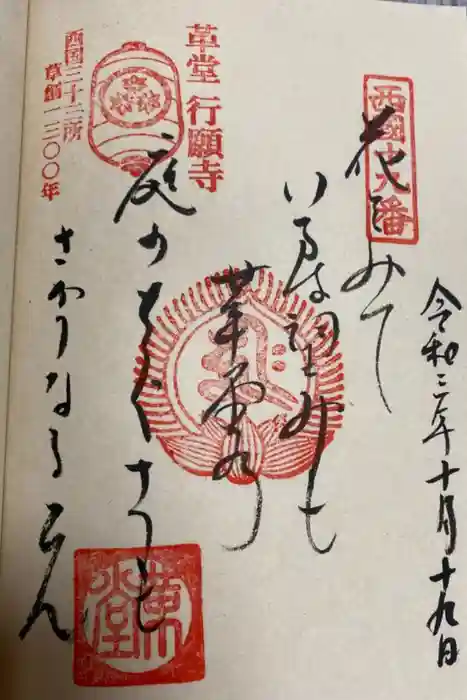 令和三年十月十九日
西國十九番
花をみて
いまは望みも
革堂の
庭のちくさも
さかりなるらん
革堂 行願寺
西国三十三所
草創一三〇〇年
革堂